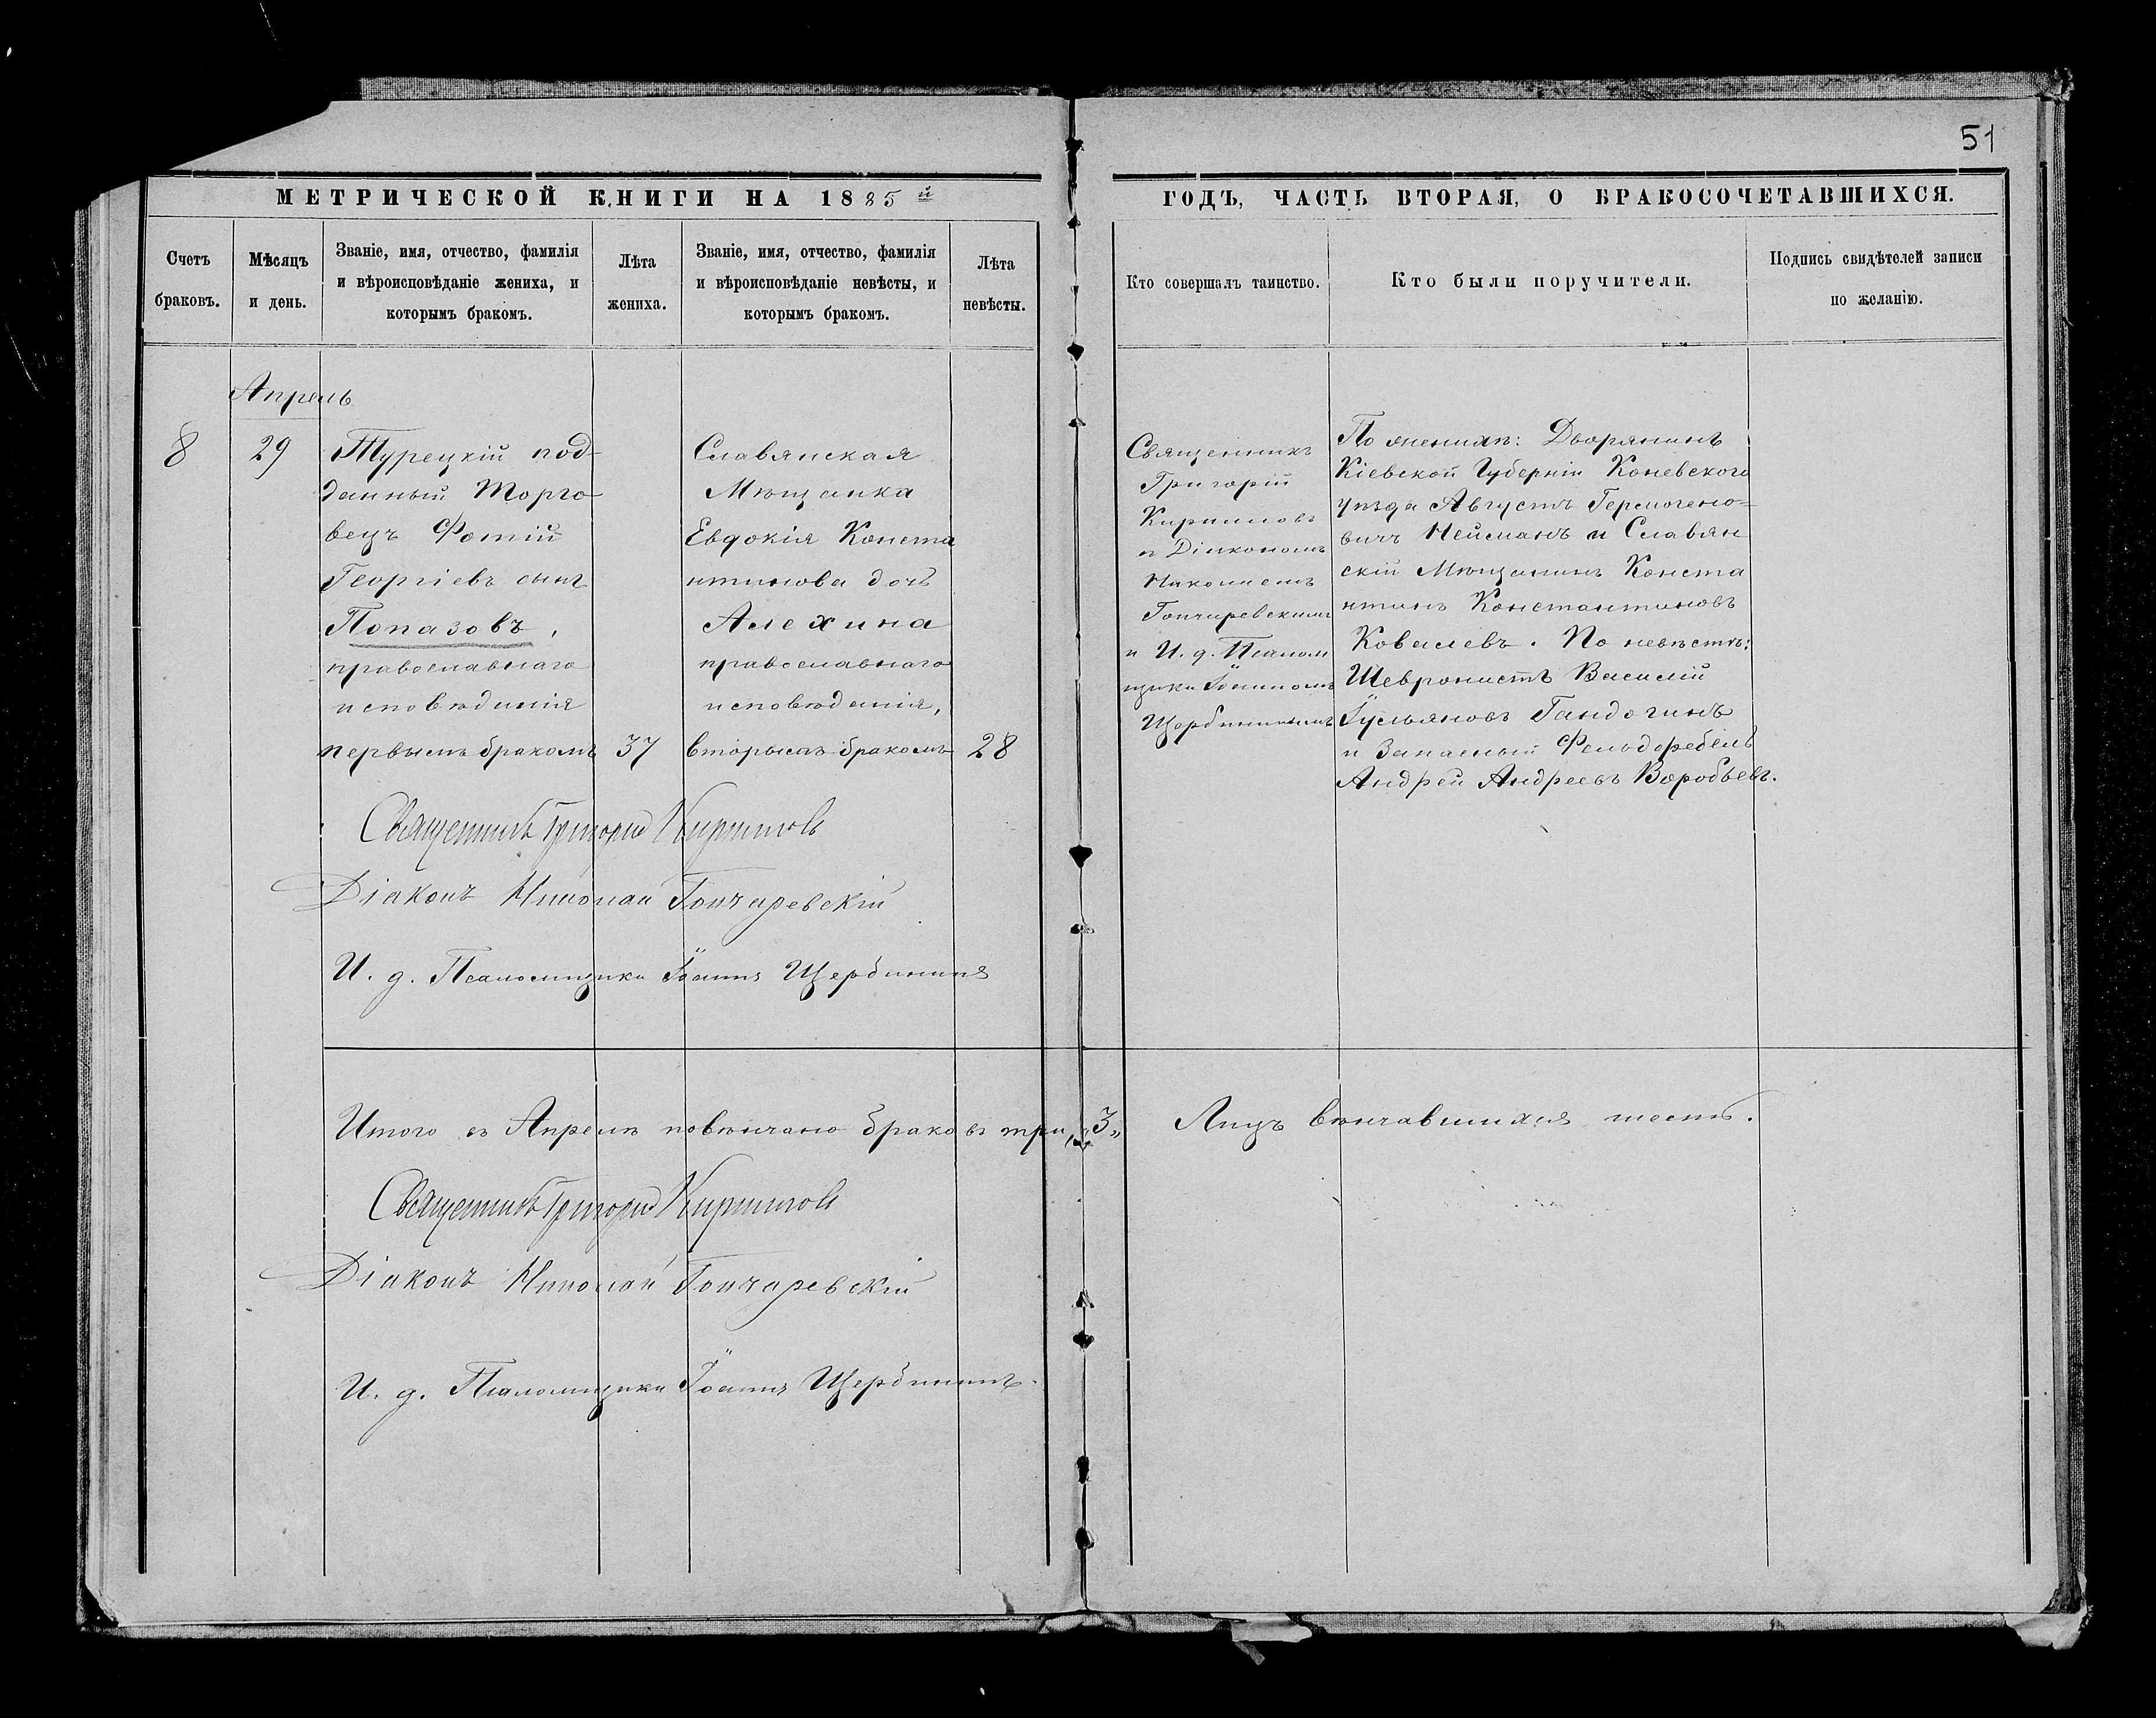 51
МЕТРИЧЕСКОЙ КНИГИ НА 1885й
ГОДЪ, ЧАСТЬ ВТОРАЯ, О БРАКОСОЧЕТАВШИХСЯ.
Счетъ
браковъ.
Мѣсяцъ
и день.
Званіе, имя, отчество, фамилія
и вѣроисповѣданіе жениха, и
которымъ бракомъ.
Лѣта
жениха.
Званіе, имя, отчество, фамилія
и вѣроисповѣданіе невѣсты, и
которымъ бракомъ.
Лѣта
невѣсты.
Кто совершалъ таинство.
Кто были поручители.
Подпись свидѣтелей записи
по желанію.
Апрель
8
29
Турецкій под-
данный Торго-
вецъ Фотій
Георгіевъ сынъ
Попазовъ,
православнаго
исповѣданія
первымъ бракомъ
37
Славянская
Мѣщанка
Евдокія Конста
нтинова дочь
Алехина
православнаго
исповѣданія,
вторымъ бракомъ
28
Священникъ
Григорій
Кириловъ
и Діакономъ
Николаемъ
Гончаревскимъ
и И. д. Псалом
щика Іоанномъ
Щербининымъ
По женихѣ: Дворянинъ
Кіевской Губерніи Коневского
уѣзда Августъ Гермогено-
вичъ Нейманъ и Славян
скій Мѣщанинъ Конста
нтинъ Константиновъ
Ковалевъ. По невѣстѣ:
Шевронистъ Василій
Гандогинъ
и Запасный Фельдфебель
Андрей Андреевъ Воробьевъ.
Священникъ Григорій Кириловъ
Діаконъ Николай Гончаревскій
И. д. Псаломщика Іоаннъ Щербининъ
Итого въ Апрелѣ повѣнчано браковъ три, „3„
Лицъ вѣнчавшихся шесть.
Священникъ Григорій Кириловъ
Діаконъ Николай Гончаревскій
И. д. Псаломщика Іоаннъ Щербининъ.